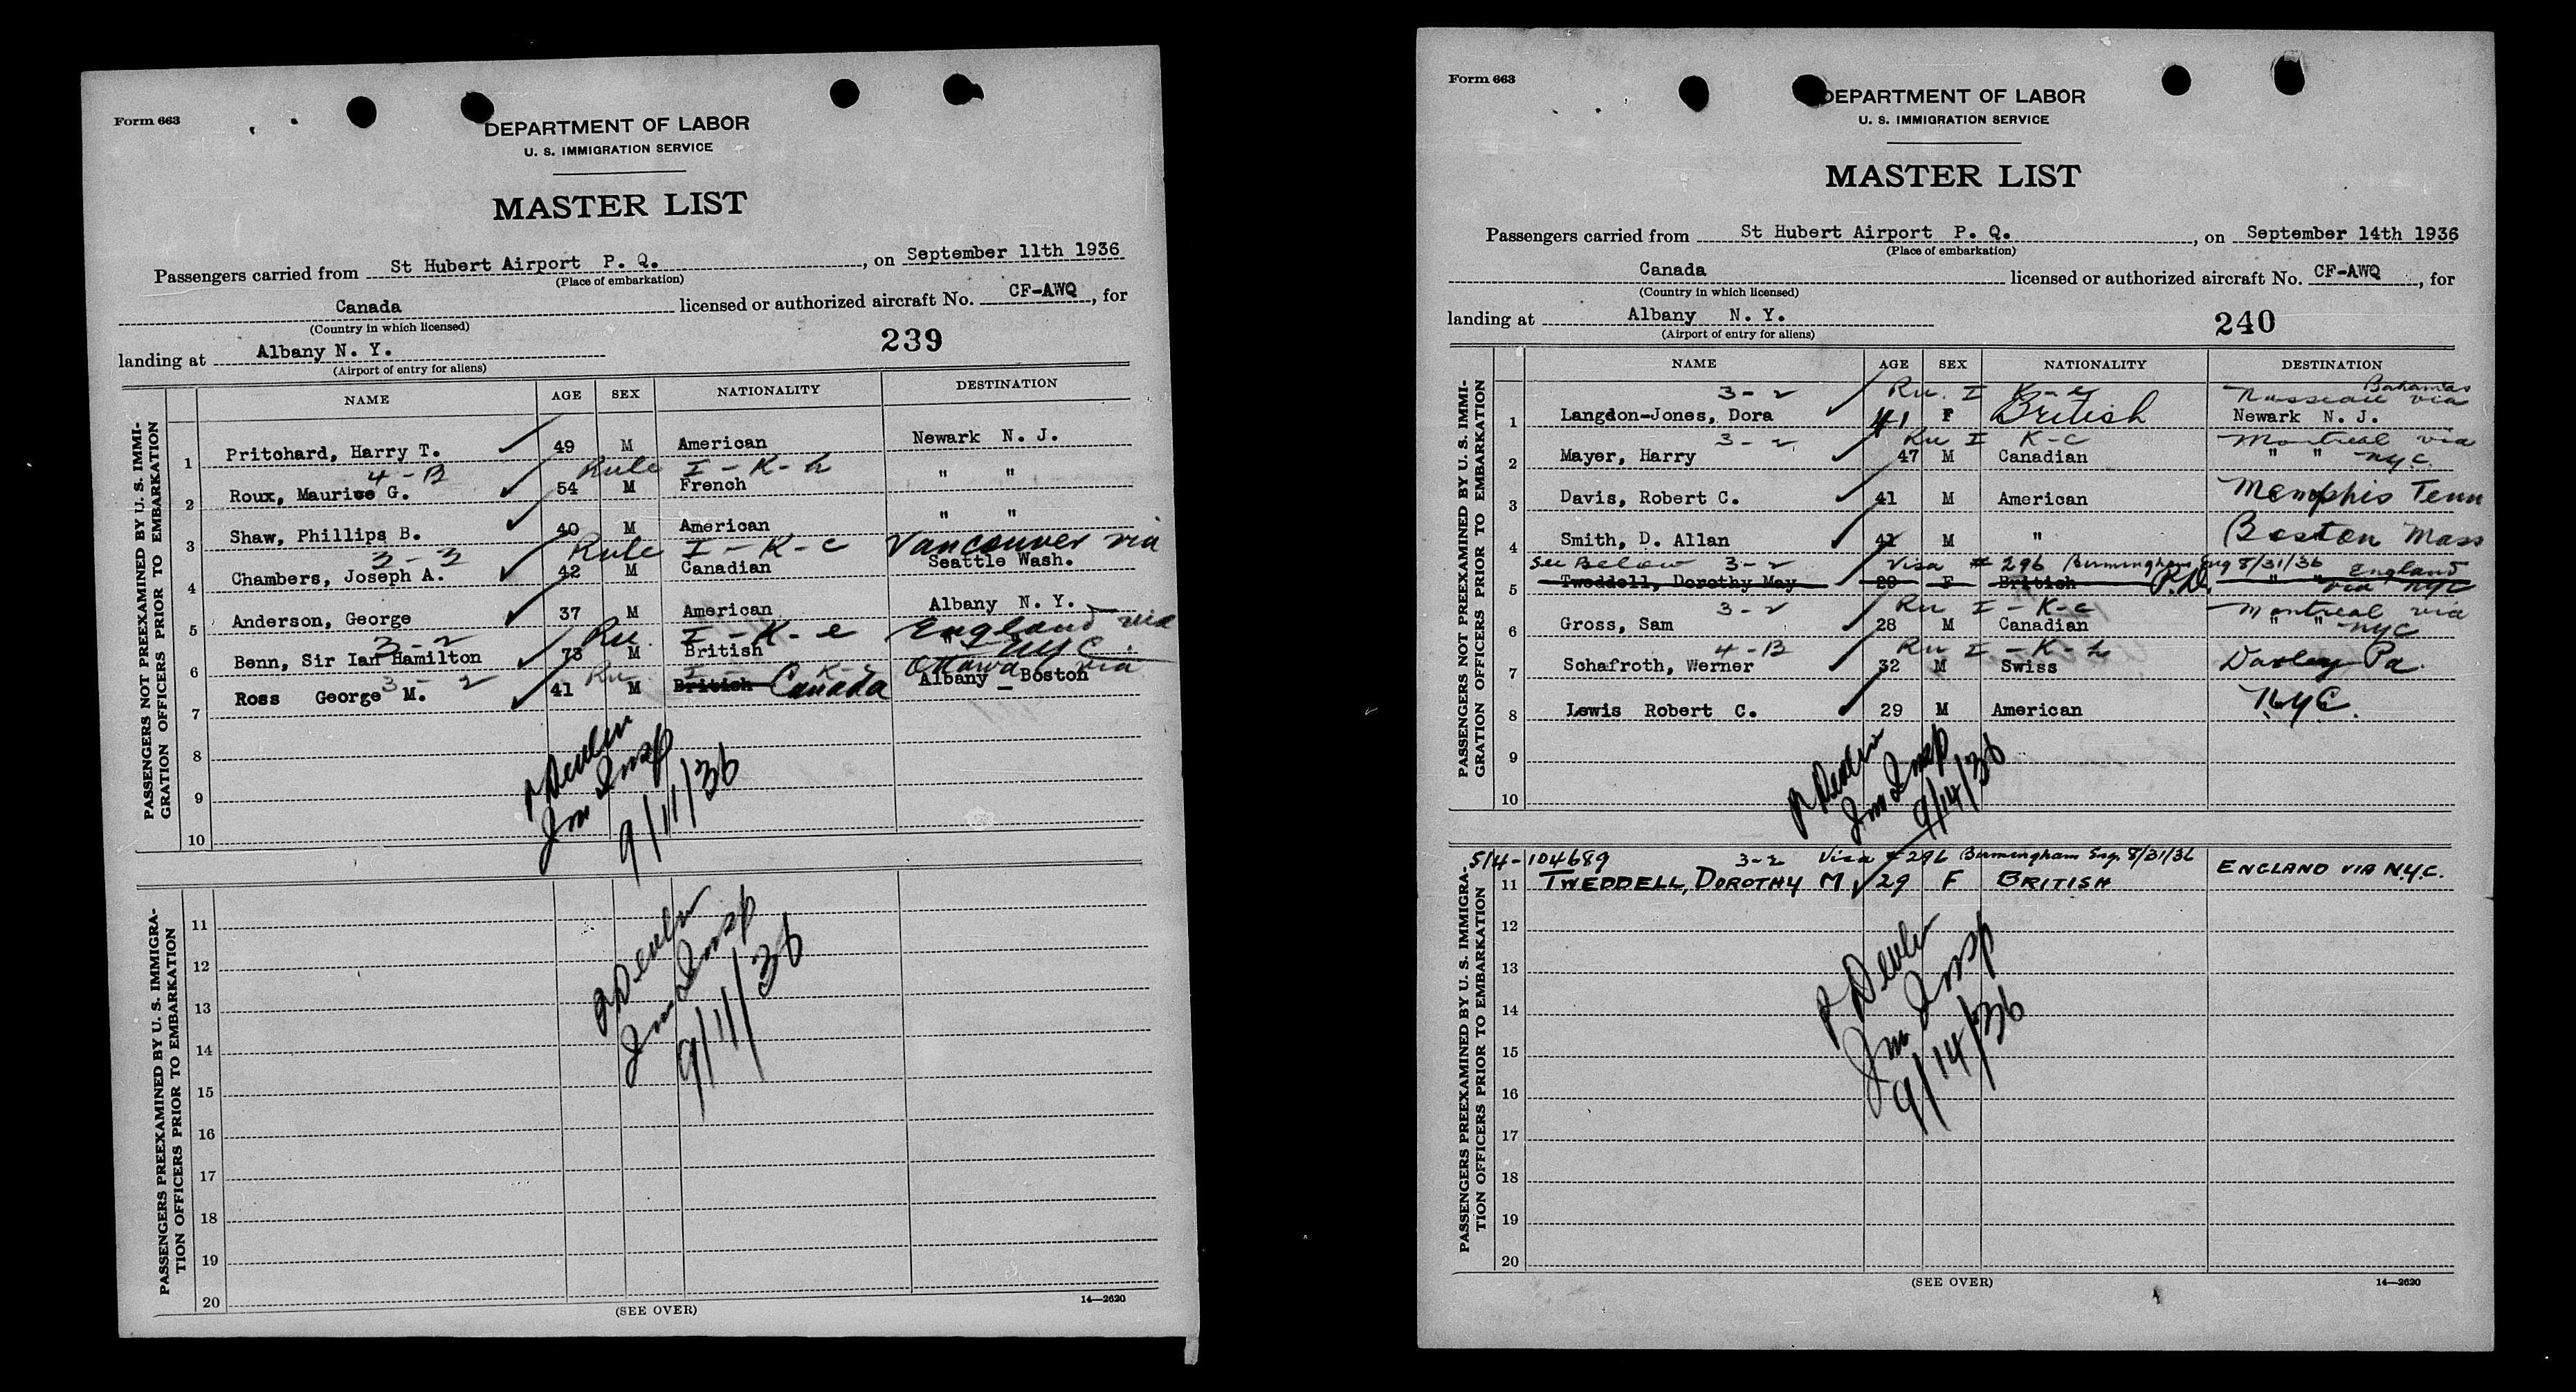 Form 663
DEPARTMENT OF LABOR
U. S. IMMIGRATION SERVICE
MASTER LIST
Passengers carried from St Hubert Airport P. Q., on September 11th 1936
(Place of embarkation)
Canada licensed or authorized aircraft No. CF-AWQ, for
(Country in which licensed)
239
landing at Albany N. Y.
(Airport of entry for aliens)
NAME AGE SEX NATIONALITY DESTINATION
PASSENGERS NOT PREEXAMINED BY U. S. IMMI-
GRATION OFFICERS PRIOR TO EMBARKATION
1 Pritchard, Harry T. 49 M American Newark N. J.
4-B Rule I-K-h
2 Roux, Maurice G. 54 M French " "
3 Shaw, Phillips B. 40 M American " "
3-3 Rule I-K-c Vancouver via
4 Chambers, Joseph A. 42 M Canadian Seattle Wash.
5 Anderson, George 37 M American Albany N. Y.
3-2 Ru. I-K-e England via
6 Benn, Sir Ian Hamilton 73 M British " NYC.
3-2 Ru. I-K-c Ottawa via
7 Ross George M. 41 M British Canada Albany - Boston
8
9
10
Devlin
Im Insp
9/11/36
PASSENGERS PREEXAMINED BY U. S. IMMIGRA-
TION OFFICERS PRIOR TO EMBARKATION
11
12
13
14
15
16
17
18
19
20
Devlin
Im Insp
9/11/36
(SEE OVER)
14—2620
Form 663
DEPARTMENT OF LABOR
U. S. IMMIGRATION SERVICE
MASTER LIST
Passengers carried from St Hubert Airport P. Q., on September 14th 1936
(Place of embarkation)
Canada licensed or authorized aircraft No. CF-AWQ, for
(Country in which licensed)
landing at Albany N. Y.
(Airport of entry for aliens)
240
NAME AGE SEX NATIONALITY DESTINATION
PASSENGERS NOT PREEXAMINED BY U. S. IMMI-
GRATION OFFICERS PRIOR TO EMBARKATION
3-2 Ru. I K-e Bahamas
Nassau via
1 Langdon-Jones, Dora 41 F British Newark N. J.
3-2 Ru I K-c Montreal via
2 Mayer, Harry 47 M Canadian " " NYC.
3 Davis, Robert C. 41 M American Memphis Tenn
4 Smith, D. Allan 41 M " Boston Mass
See Below 3-2 Visa # 296 Birmingham Eng 8/31/36 England
5 Tweddell, Dorothy May 29 F British P.D. " " via NYC
3-2 Ru I-K-c Montreal via
6 Gross, Sam 28 M Canadian " " NYC
4-B Ru I-K-h
7 Schafroth, Werner 32 M Swiss Pa.
8 Lewis Robert C. 29 M American NYC.
9
10
Devlin
Im Insp
9/14/36
PASSENGERS PREEXAMINED BY U. S. IMMIGRA-
TION OFFICERS PRIOR TO EMBARKATION
5/4-104689 3-2 Visa #296 Birmingham Eng. 8/31/36
11 TWEDDELL, DOROTHY M 29 F BRITISH ENGLAND VIA N.Y.C.
12
13
14
15
16
17
18
19
20
Devlin
Im Insp
9/14/36
(SEE OVER)
14—2620